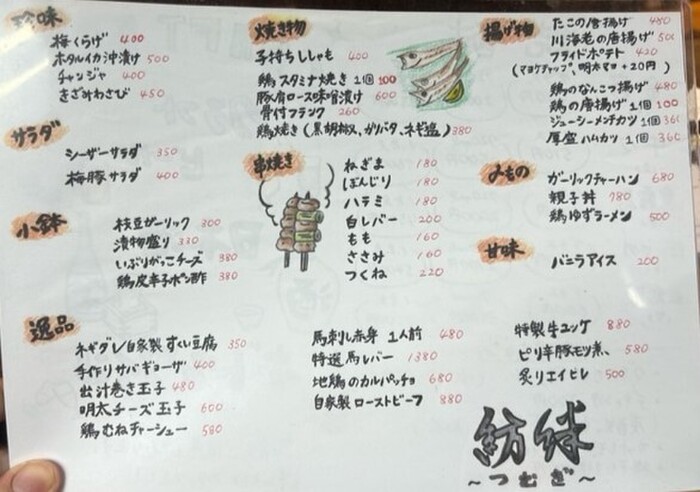 珍味
梅くらげ 400
ホタルイカ沖漬け 500
チャンジャ 400
きざみわさび 450
サラダ
シーザーサラダ 350
梅豚サラダ 400
小鉢
枝豆ガーリック 300
漬物盛り 330
いぶりがっこチーズ 380
鶏皮辛子ポン酢 380
焼き物
子持ちししゃも 400
鶏スタミナ焼き 1個 100
豚肩ロース味噌漬け 600
骨付フランク 260
鶏焼き(黒胡椒、ガリバタ、ネギ塩) 380
串焼き
ねぎま 180
ぼんじり 180
ハラミ 180
白レバー 200
もも 160
ささみ 160
つくね 220
揚げ物
たこの唐揚げ 480
川海老の唐揚げ
フライドポテト 420
(マヨケチャップ、明太マヨ +20円)
鶏のなんこつ揚げ 480
鶏の唐揚げ 1個 100
ジューシーメンチカツ 1個
厚盛ハムカツ 1個 360
〆もの
ガーリックチャーハン 680
親子丼 780
鶏ゆずラーメン 500
甘味
バニラアイス 200
逸品
ネギダレ自家製すくい豆腐 350
手作りサバギョーザ 400
出汁巻き玉子 480
明太チーズ玉子 600
鶏むねチャーシュー 580
馬刺し赤身 1人前 480
特選馬レバー 1380
地鶏のカルパッチョ 680
自家製ローストビーフ 880
特製牛ユッケ 880
ピリ辛豚モツ煮、 580
炙りエイヒレ 500
紡絆
~つむぎ~